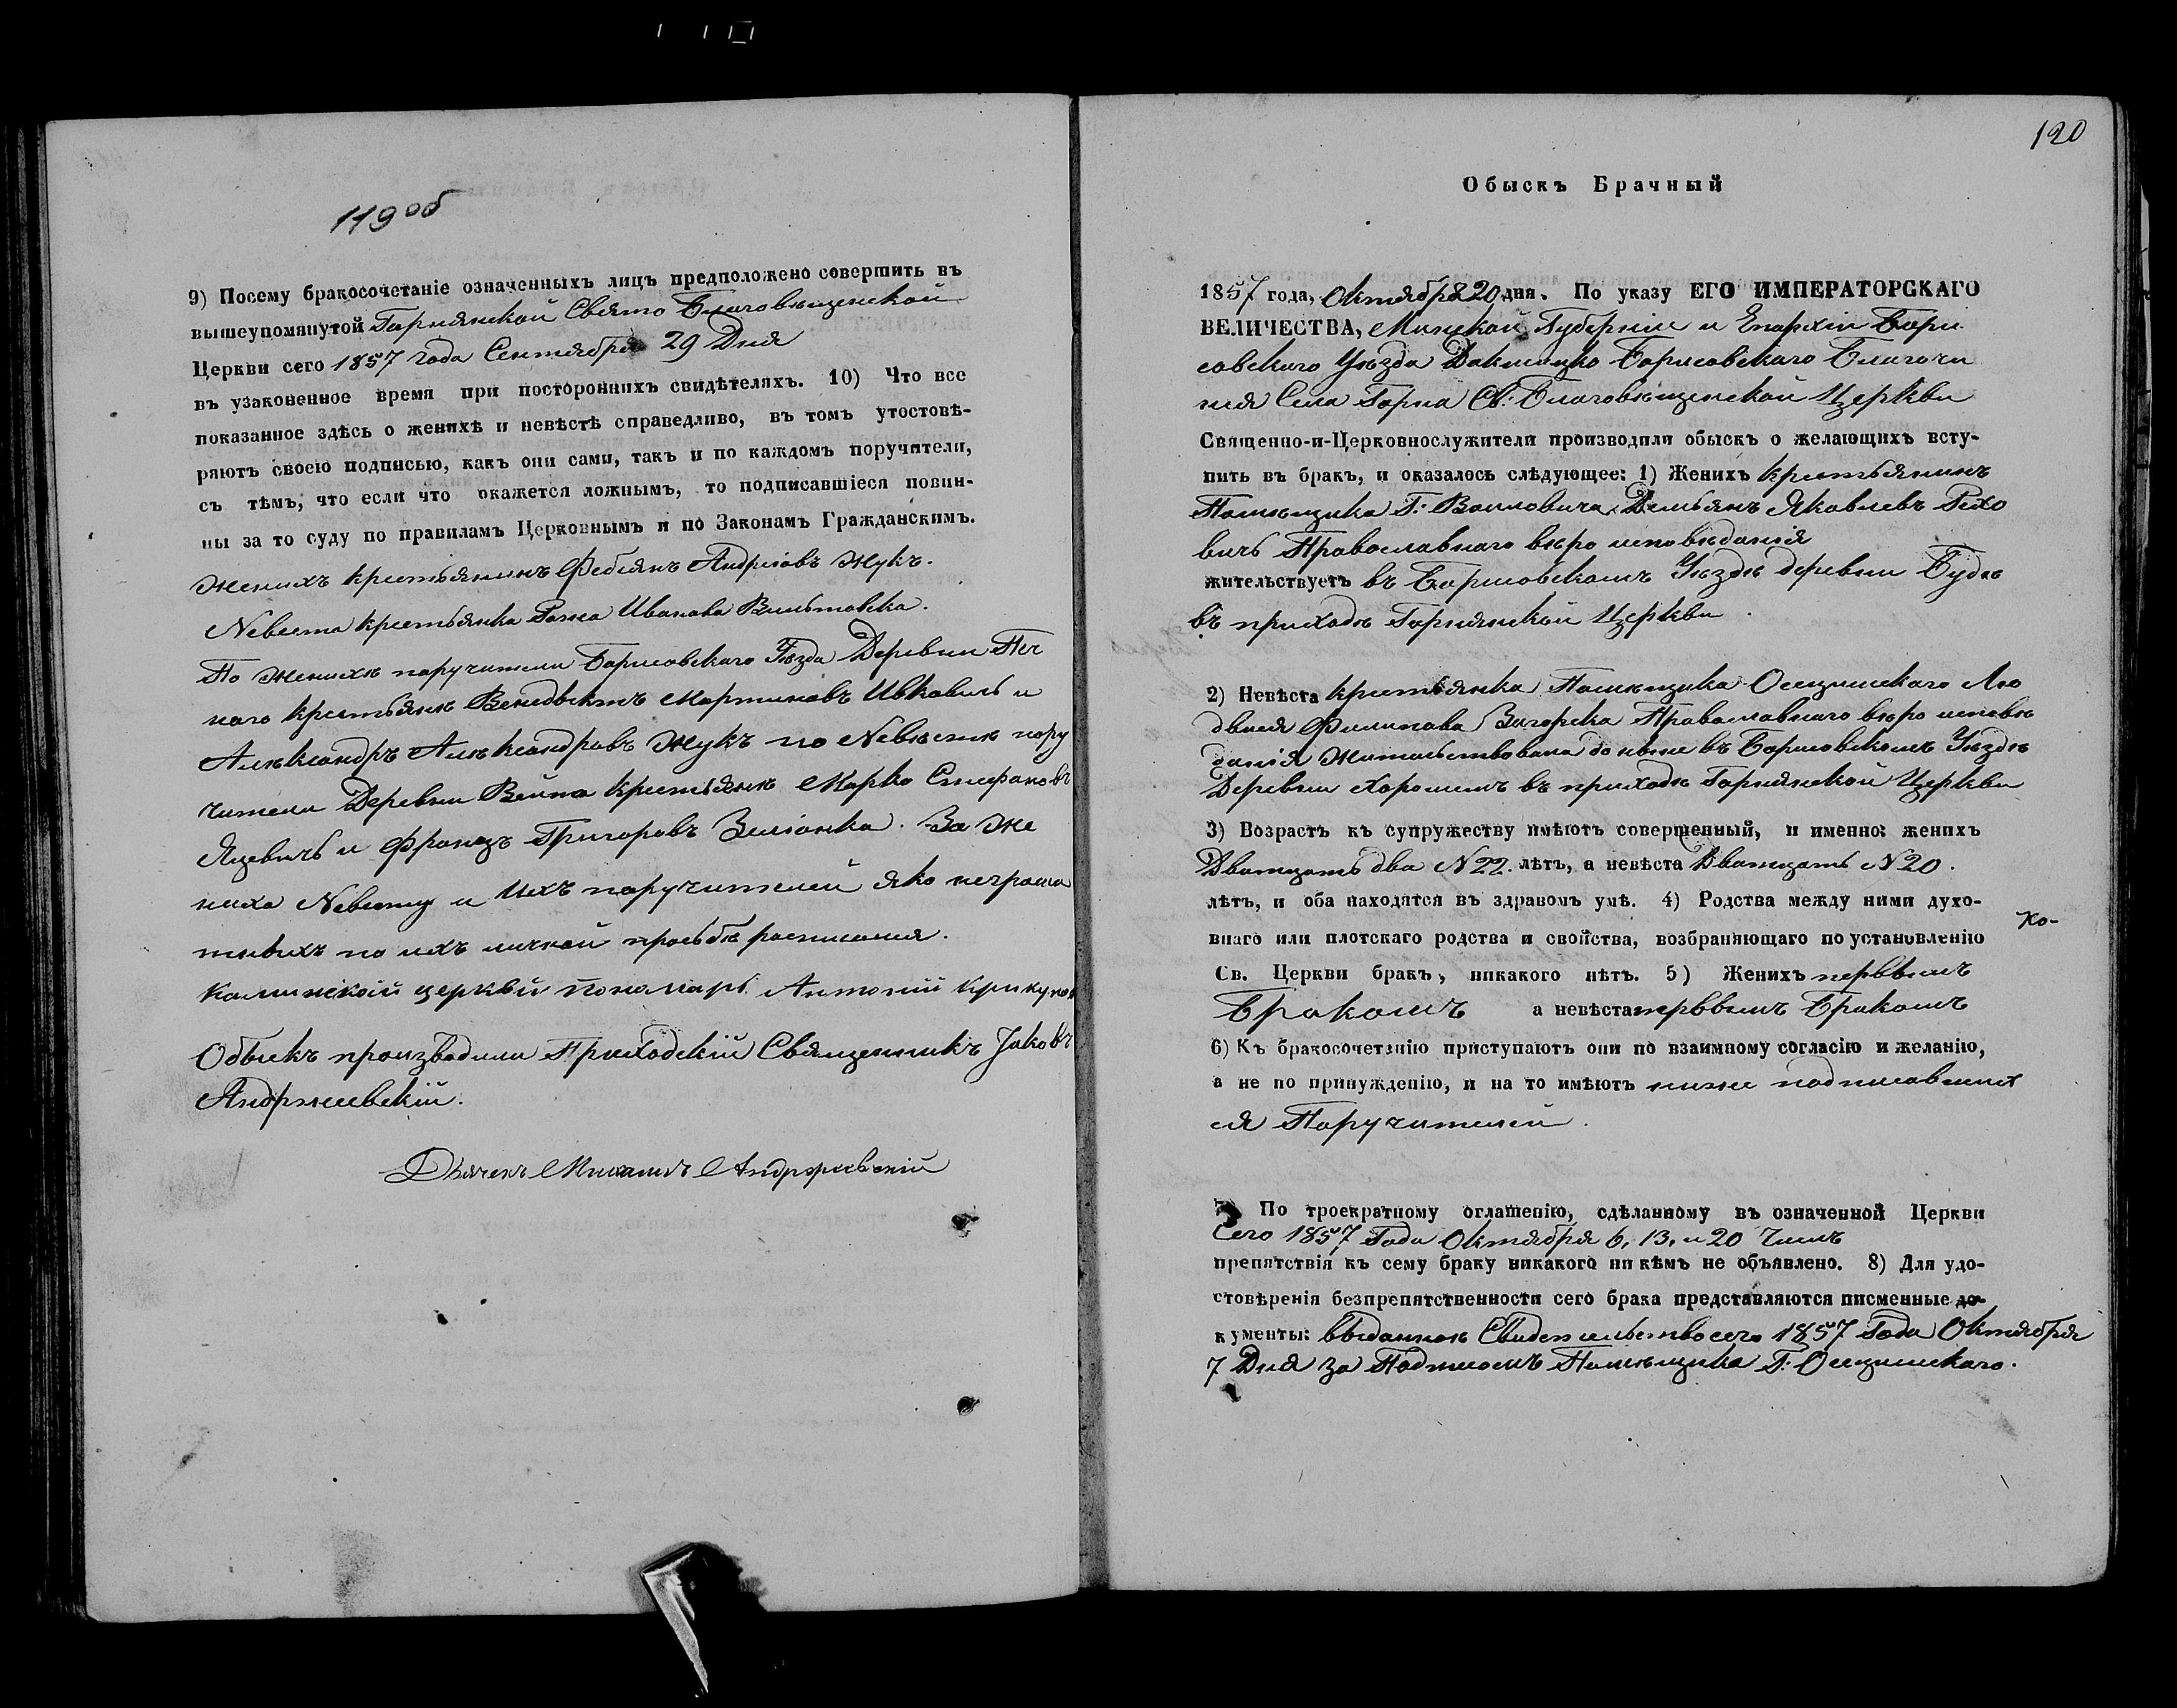 119 об
9) Посему бракосочетаніе означенныхъ лицъ предположено совершить въ
вышеупомянутой Горнянской Свято Благовѣщенской
Церкви сего 1857 года Сентября 29 Дня
въ узаконенное время при постороннихъ свидѣтеляхъ. 10) Что все
показанное здѣсь о женихѣ и невѣстѣ справедливо, въ томъ утостовѣ-
ряютъ своею подписью, какъ они сами, такъ и по каждомъ поручители,
съ тѣмъ, что если что окажется ложнымъ, то подписавшіеся повин-
ны за то суду по правиламъ Церковнымъ и по Законамъ Гражданскимъ.
Женихъ крестьянинъ Фебіянъ Андреіовъ Жукъ.
Невеста крестьянка Рожа Иванова
По Женихѣ поручители Борисовскаго Уѣзда Деревни
крестьянѣ Венедыктъ Мартиновъ Ивковичь и
Алѣксандръ Алѣксандровъ Жукъ по Невѣстѣ пору
чители Деревни Вейна крестьянѣ Марко Стефановъ
Яцевичь и Францъ Григоровъ Зиліонка. За Же
ниха Невесту и ихъ поручителей яко неграмо
тныхъ по ихъ личной прозьбѣ росписался.
церквй пономарь Антоній
Обыскъ производили Приходскій Священникъ Јаковъ
Андржеевскій.
Дьячекъ Михаилъ Андржеевскій
120
Обыскъ Брачный
1857 года, Октября 20 дня. По указу ЕГО ИМПЕРАТОРСКАГО
ВЕЛИЧЕСТВА, Минской Губерніи и Епархіи Бори
совскаго Уѣзда Докшицко Борисовскаго Благочи
нія Села Горна Св: Благовѣщенской Церкви
Священно-и-Церковнослужители производили обыскъ о желающихъ всту-
пить въ бракъ, и оказалось слѣдующее: 1) Женихъ крестьянинъ
Помѣщика Г: Воиловича Демьянъ Яковлевъ Рахо
вичь Православнаго вѣро исповѣданія
жительствуетъ въ Борисовскомъ Уѣздѣ деревни Будѣ
въ приходѣ Горнянской Церкви
2) Невѣста крестьянка Помѣщика Осецимскаго Лю
двися Филипова Загорска Православнаго вѣро исповѣ
данія Жительствовала до ныне въ Борисовскомъ Уѣздѣ
Деревни въ приходѣ Горнянской Церкви
3) Возрастъ къ супружеству имѣютъ совершенный, и именно: женихъ
Дватцать два N 22. лѣтъ, а невѣста Дватцать N 20.
лѣтъ, и оба находятся въ здравомъ умѣ. 4) Родства между ними духо-
внаго или плотскаго родства и свойства, возбраняющаго по установленію
Св. Церкви бракъ, никакого нѣтъ. 5) Женихъ первымъ
Бракомъ а невѣста первымъ Бракомъ
6) Къ бракосочетанію приступаютъ они по взаимному согласію и желанію,
а не по принужденію, и на то имѣютъ ниже подписавших
ся Поручителей.
7) По троекратному оглашенію, сдѣланному въ означенной Церкви
Сего 1857 Года Октября 6, 13, и 20 Числъ
препятствія къ сему браку никакого ни кѣмъ не объявлено. 8) Для удо-
стовѣренія безпрепятственности сего брака представляются писменные до-
кументы: выданное Свидетельство сего 1857 Года Октября
7 Дня за Подписомъ Помѣщика Г: Осецимскаго.
Ко-